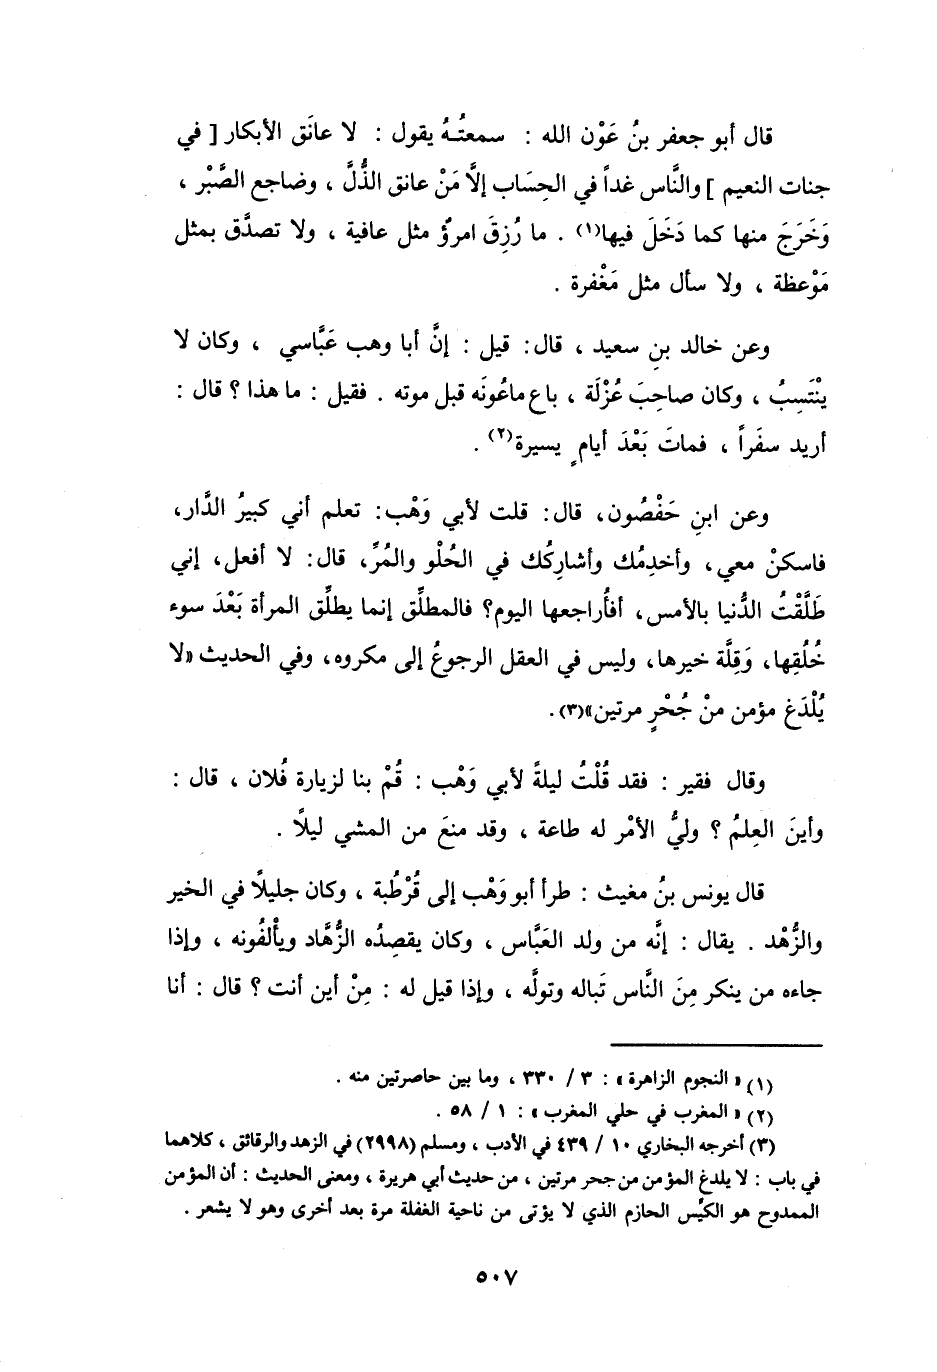 قال أبو جعفر بنُ عَوْن الله : سمعتُـهُ يقول : لا عانَق الأبكار [ في
جنات النعيم ] والنَّاس غداً في الحِسَاب إلاَّ مَنْ عانق الذُّلَّ ، وضاجع الصَّبْر ،
وَخَرَجَ منها كما دَخَلَ فيها(١) . ما رُزِقَ امرؤٌ مثل عافية ، ولا تصدَّق بمثل
مَوْعظة ، ولا سأل مثل مَغْفرة .
وعن خالد بنِ سعيد ، قال: قيل : إنَّ أبا وهب عَبَّاسي ، وكان لا
يَنْتَسِبُ ، وكان صاحِبَ عُزْلَة ، باع ماعُونَه قبل موته . فقيل : ما هذا ؟ قال :
أريد سفَراً ، فماتَ بَعْدَ أيامٍ يسيرة(٢) .
وعن ابنِ حَفْصُون، قال: قلت لأبي وَهْب: تعلم أني كبيرُ الدَّار،
فاسكنْ معي، وأخدِمُك وأشارِكُك في الحُلْو والمُرِّ، قال: لا أفعل، إني
طَلَّقْتُ الدُّنيا بالأمس، أفأُراجعها اليوم؟ فالمطلِّق إنما يطلِّق المرأة بَعْدَ سوء
خُلُقِها، وَقِلَّة خيرها، وليس في العقل الرجوعُ إلى مكروه، وفي الحديث «لا
يُلْدَغ مؤمن منْ جُحْرٍ مرتين»(٣).
وقال فقير : فقد قُلْتُ ليلةً لأبي وَهْب : قُمْ بنا لزيارة فُلان ، قال :
وأينَ العِلمُ ؟ وليُّ الأمْر له طاعة ، وقد منعَ من المشي ليلاً .
قال يونس بنُ مغيث : طرأ أبو وَهْب إلى قُرْطُبة ، وكان جليلاً في الخير
والزُّهْد . يقال : إنَّه من ولد العَبَّاس ، وكان يقصِدُه الزُّهَّاد ويألَفُونه ، وإذا
جاءه من ينكر مِنَ النَّاس تَباله وتولَّه ، وإذا قيل له : مِنْ أين أنت ؟ قال : أنا
(١) « النجوم الزاهرة » : ٣ / ٣٣٠ ، وما بين حاصرتين منه .
(٢) « المغرب في حلي المغرب » : ١ / ٥٨ .
(٣) أخرجه البخاري ١٠ / ٤٣٩ في الأدب ، ومسلم (٢٩٩٨) في الزهد والرقائق ، كلاهما
في باب : لا يلدغ المؤمن من جحر مرتين ، من حديث أبي هريرة ، ومعنى الحديث : أن المؤمن
الممدوح هو الكيِّس الحازم الذي لا يؤتى من ناحية الغفلة مرة بعد أخرى وهو لا يشعر .
٥٠٧